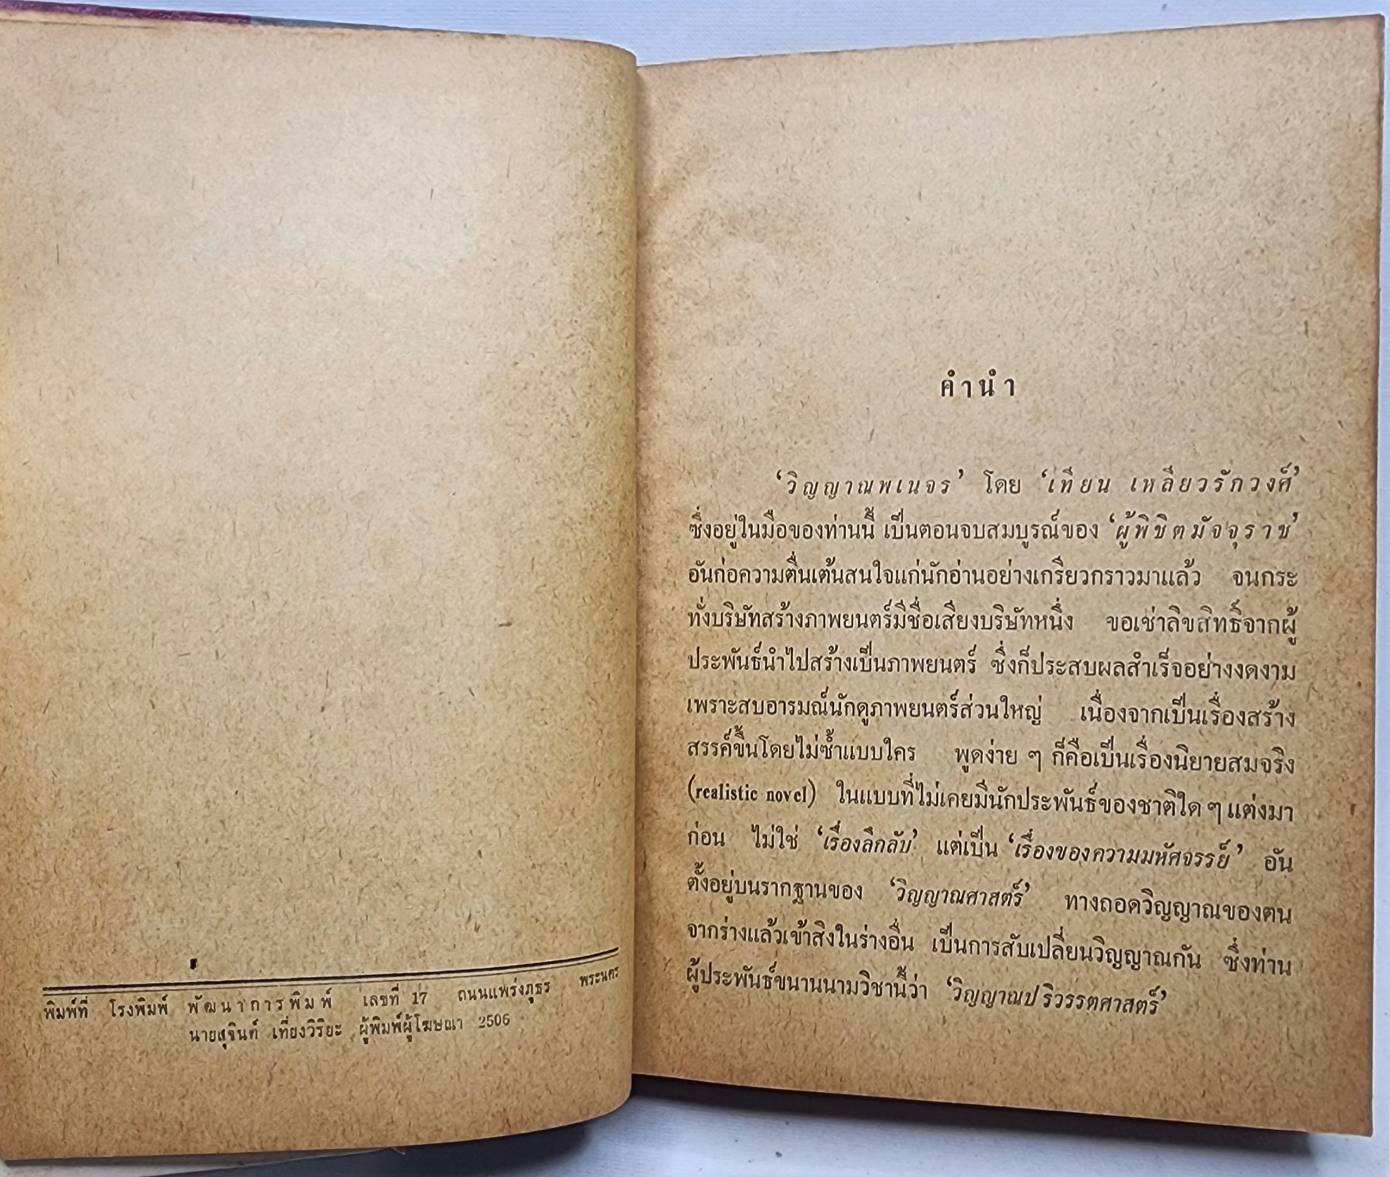 พิมพ์ที่ โรงพิมพ์ พัฒนาการพิมพ์ เลขที่ 17 ถนนแพร่งภูธร พระนคร
นายสุจินต์ เที่ยงวิริยะ ผู้พิมพ์ผู้โฆษณา 2506
คำนำ
‘วิญญาณพเนจร’ โดย ‘เทียน เหลียวรักวงศ์’
ซึ่งอยู่ในมือของท่านนี้ เป็นตอนจบสมบูรณ์ของ ‘ผู้พิชิตมัจจุราช’
อันก่อความตื่นเต้นสนใจแก่นักอ่านอย่างเกรียวกราวมาแล้ว จนกระ
ทั่งบริษัทสร้างภาพยนตร์มีชื่อเสียงบริษัทหนึ่ง ขอเช่าลิขสิทธิ์จากผู้
ประพันธ์นำไปสร้างเป็นภาพยนตร์ ซึ่งก็ประสบผลสำเร็จอย่างงดงาม
เพราะสบอารมณ์นักดูภาพยนตร์ส่วนใหญ่ เนื่องจากเป็นเรื่องสร้าง
สรรค์ขึ้นโดยไม่ซ้ำแบบใคร พูดง่าย ๆ ก็คือเป็นเรื่องนิยายสมจริง
(realistic novel) ในแบบที่ไม่เคยมีนักประพันธ์ของชาติใด ๆ แต่งมา
ก่อน ไม่ใช่ ‘เรื่องลึกลับ’ แต่เป็น ‘เรื่องของความมหัศจรรย์’ อัน
ตั้งอยู่บนรากฐานของ ‘วิญญาณศาสตร์’ ทางถอดวิญญาณของตน
จากร่างแล้วเข้าสิงในร่างอื่น เป็นการสับเปลี่ยนวิญญาณกัน ซึ่งท่าน
ผู้ประพันธ์ขนานนามวิชานี้ว่า ‘วิญญาณปริวรรตศาสตร์’